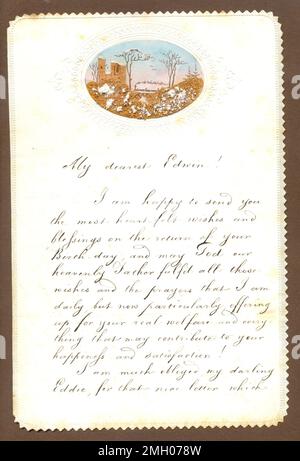 My dearest Edwin!
I am happy to send you
the most heart felt wishes and
blessings on the return of your
Birth day, and may God our
heavenly Father fulfil all those
wishes and the prayers that I am
daily but now particularly offering
up for your real welfare and every
thing that may contribute to your
happiness and satisfaction!
I am much obliged my darling
Eddie, for that nice letter which
alamy
Image ID: 2MH078W
www.alamy.com